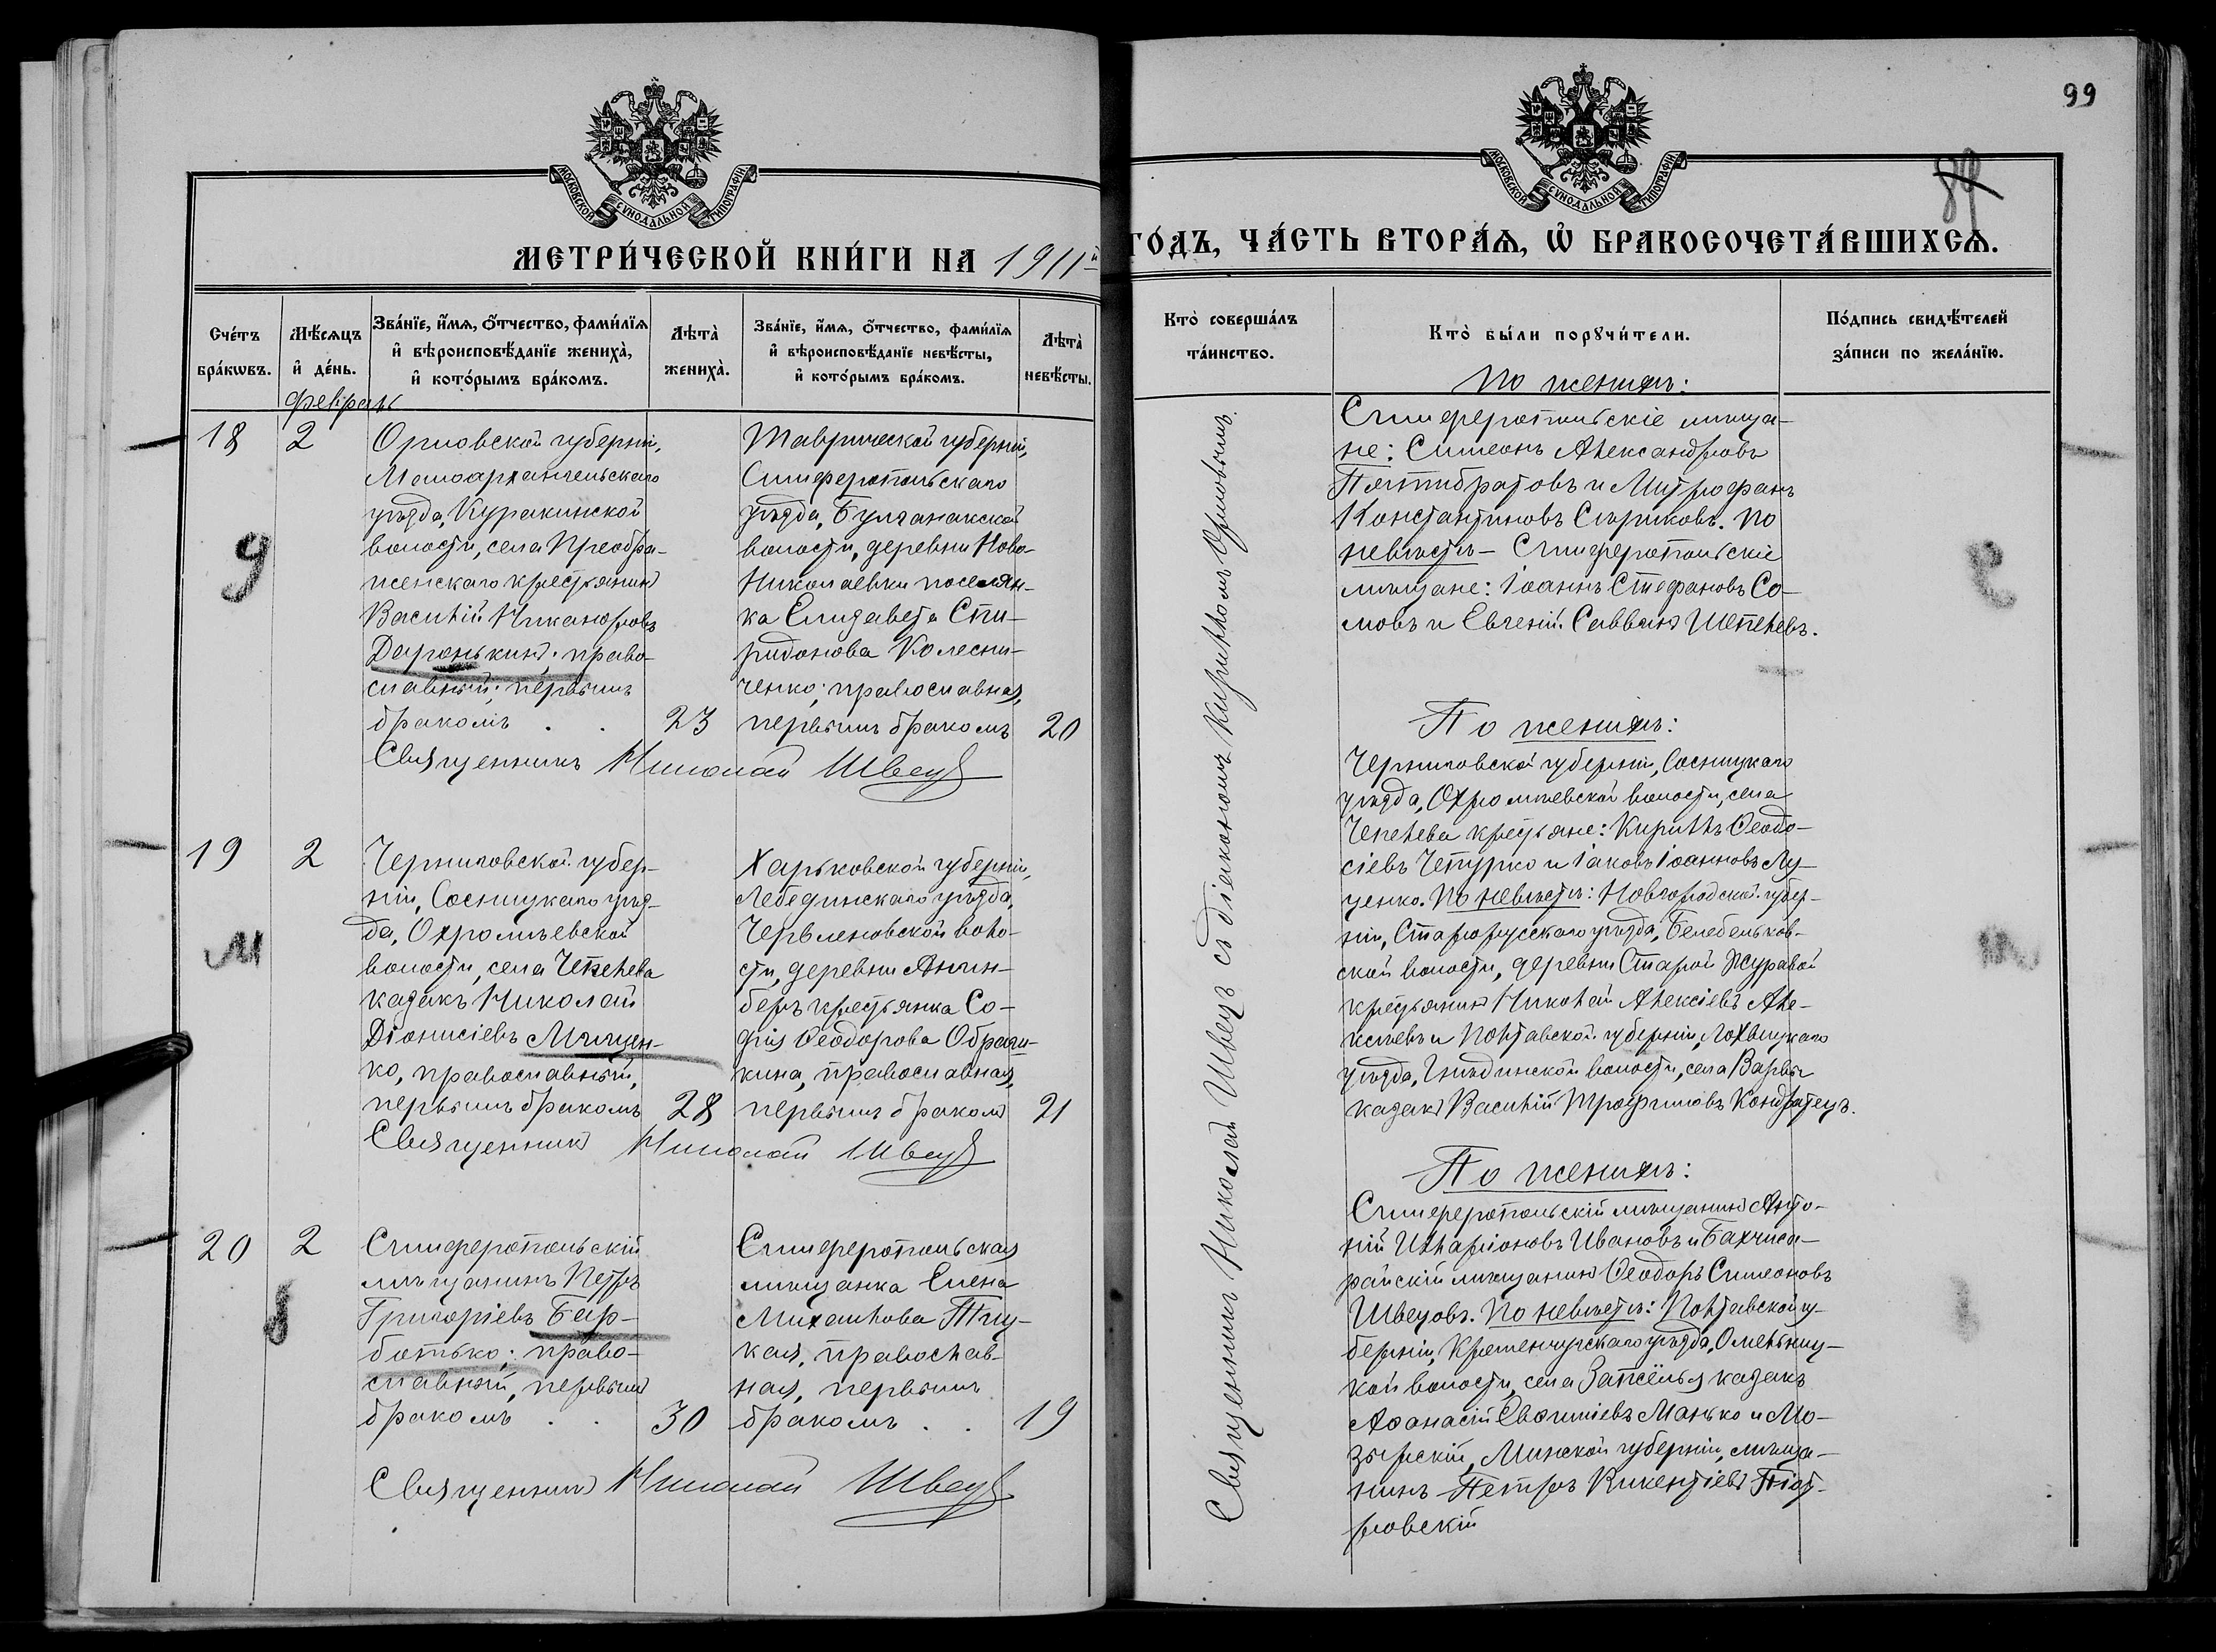 99
89
МОСКОВСКОЙ СѴНОДАЛЬНОЙ ТИПОГРАФІИ
МОСКОВСКОЙ СѴНОДАЛЬНОЙ ТИПОГРАФІИ
МЕТРИ́ЧЕСКОЙ КНИ́ГИ НА 1911й
ГО́ДЪ, ЧА́СТЬ ВТОРА́Ѧ, Ѽ БРАКОСОЧЕТА́ВШИХСѦ.
Сче́тъ
бра́кѡвъ.
Мѣ́сѧцъ
и҆ де́нь.
Зва́нїе, и҆́мѧ, ѻ҆́тчество, фами́лїѧ
и҆ вѣроисповѣ́данїе жениха̀,
и҆ кото́рымъ бра́комъ.
Лѣта̀
жениха̀.
Зва́нїе, и҆́мѧ, ѻ҆́тчество, фами́лїѧ
и҆ вѣроисповѣ́данїе невѣ́сты,
и҆ кото́рымъ бра́комъ.
Лѣта̀
невѣ́сты.
Кто̀ соверша́лъ
та́инство.
Кто̀ бы́ли порꙋчи́тели.
По́дпись свидѣ́телей
за́писи по жела́нїю.
Февраль
18
2
Орловской губерніи,
Малоархангельскаго
уѣзда, Куракинской
волости, села Преобра-
женскаго крестьянинъ
Василій Никаноровъ
Даронькинъ; право-
славный; первымъ
бракомъ . .
23
Таврической губерніи,
Симферопольскаго
уѣзда, Булганакской
волости, деревни Ново-
Николаевки поселян-
ка Елизавета Спи-
ридонова Колесни-
ченко; православная,
первымъ бракомъ
20
Священникъ Николай Швецъ
9
19
2
Черниговской губер-
ніи, Сосницкаго уѣз-
да, Охромѣевской
волости, села Чепелева
казакъ Николай
Діонисіевъ Мищен-
ко, православный,
первымъ бракомъ
28
Харьковской губерніи,
Лебединскаго уѣзда,
Червленовской воло-
сти, деревни Аннин-
беръ крестьянка Со-
фія Ѳеодорова Обраги-
кина, православная,
первымъ бракомъ
21
Священникъ Николай Швецъ
М
20
2
Симферопольскій
мѣщанинъ Петръ
Григоріевъ Бар-
батько; право-
славный, первымъ
бракомъ . .
30
Симферопольская
мѣщанка Елена
Михаилова Тиц-
кая, православ-
ная, первымъ
бракомъ . .
19
Священникъ Николай Швецъ
Б
Священникъ Николай Швецъ съ діакономъ Кирилломъ Орловымъ.
По женихѣ:
Симферопольскіе мѣща-
не: Симеонъ Александровъ
Пятибратовъ и Митрофанъ
Константиновъ Сыриковъ. По
невѣстѣ – Симферопольскіе
мѣщане: Іоаннъ Стефановъ Со-
мовъ и Евгеній Саввинъ Шепелевъ.
По женихѣ:
Черниговской губерніи, Сосницкаго
уѣзда, Охромѣевской волости, села
Чепелева крестьяне: Кириллъ Ѳеодо-
сіевъ Чепурко и Іаковъ Іоанновъ Лу-
ценко. По невѣстѣ: Новгородской губер-
ніи, Старорусскаго уѣзда, Белебельков-
ской волости, деревни Старой Журавой
крестьянинъ Николай Алексіевъ Але-
ксѣевъ и Полтавской губерніи, Лохвицкаго
уѣзда, Гнѣдинской волости, села Варвы
казакъ Василій Трофимовъ Кондратецъ.
По женихѣ:
Симферопольскій мѣщанинъ Анто-
ній Иларіоновъ Ивановъ и Бахчиса-
райскій мѣщанинъ Ѳеодоръ Симеоновъ
Швецовъ. По невѣстѣ: Полтавской гу-
берніи, Кременчугскаго уѣзда, Омельниц-
кой волости, села Запселья казакъ
Аѳанасій Евѳиміевъ Манько и Мо-
зырскій, Минской губерніи, мѣща-
нинъ Петръ Викентіевъ Піот-
ровскій